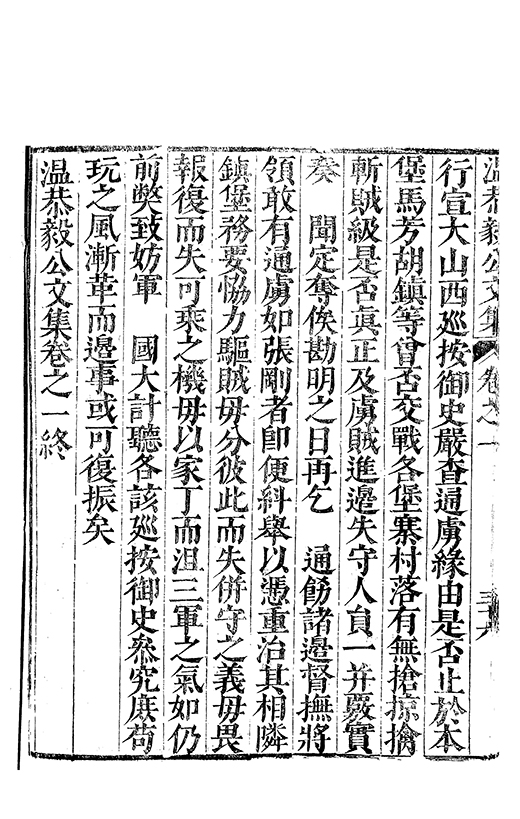 温恭毅公文集 卷之一 三六
行宣大山西巡按御史嚴查通虜緣由是否止於本
堡馬芳胡鎮等曾否交戰各堡寨村落有無搶掠擒
斬賊級是否眞正及虜賊進邊失守人員一并覈實
奏 聞定奪俟勘明之日再乞 通飭諸邊督撫將
領敢有通虜如張剛者卽便糾舉以憑重治其相隣
鎮堡務要恊力驅賊毋分彼此而失併守之義毋畏
報復而失可乘之機毋以家丁而沮三軍之氣如仍
前弊致妨軍 國大計聽各該巡按御史叅究庶苟
玩之風漸革而邊事或可復振矣
温恭毅公文集卷之一終